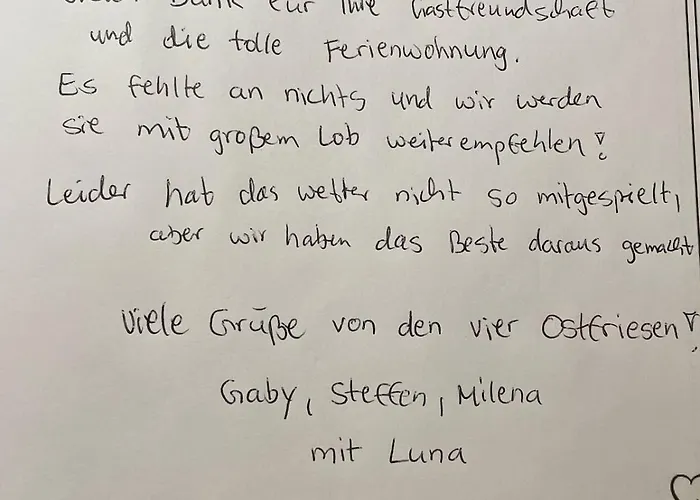 Vielen Dank für Ihre Gastfreundschaft
und die tolle Ferienwohnung.
Es fehlte an nichts und wir werden
sie mit großem Lob weiterempfehlen!
Leider hat das wetter nicht so mitgespielt,
aber wir haben das Beste daraus gemacht
Viele Grüße von den vier Ostfriesen!
Gaby, Steffen, Milena
mit Luna